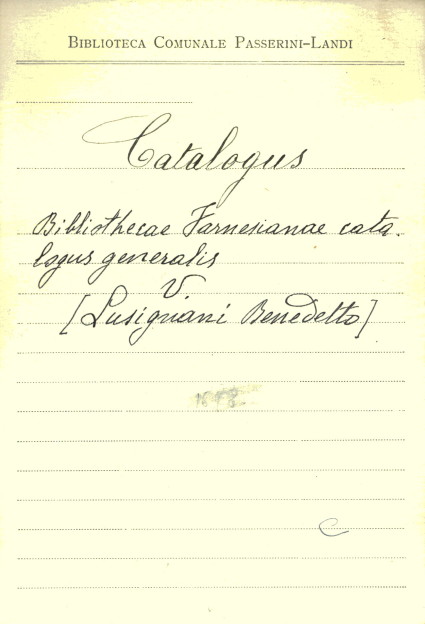 BIBLIOTECA COMUNALE PASSERINI-LANDI
Catalogus
Bibliothecae Farnesianae cata-
logus generalis
V.
[Lusignani Benedetto]
C